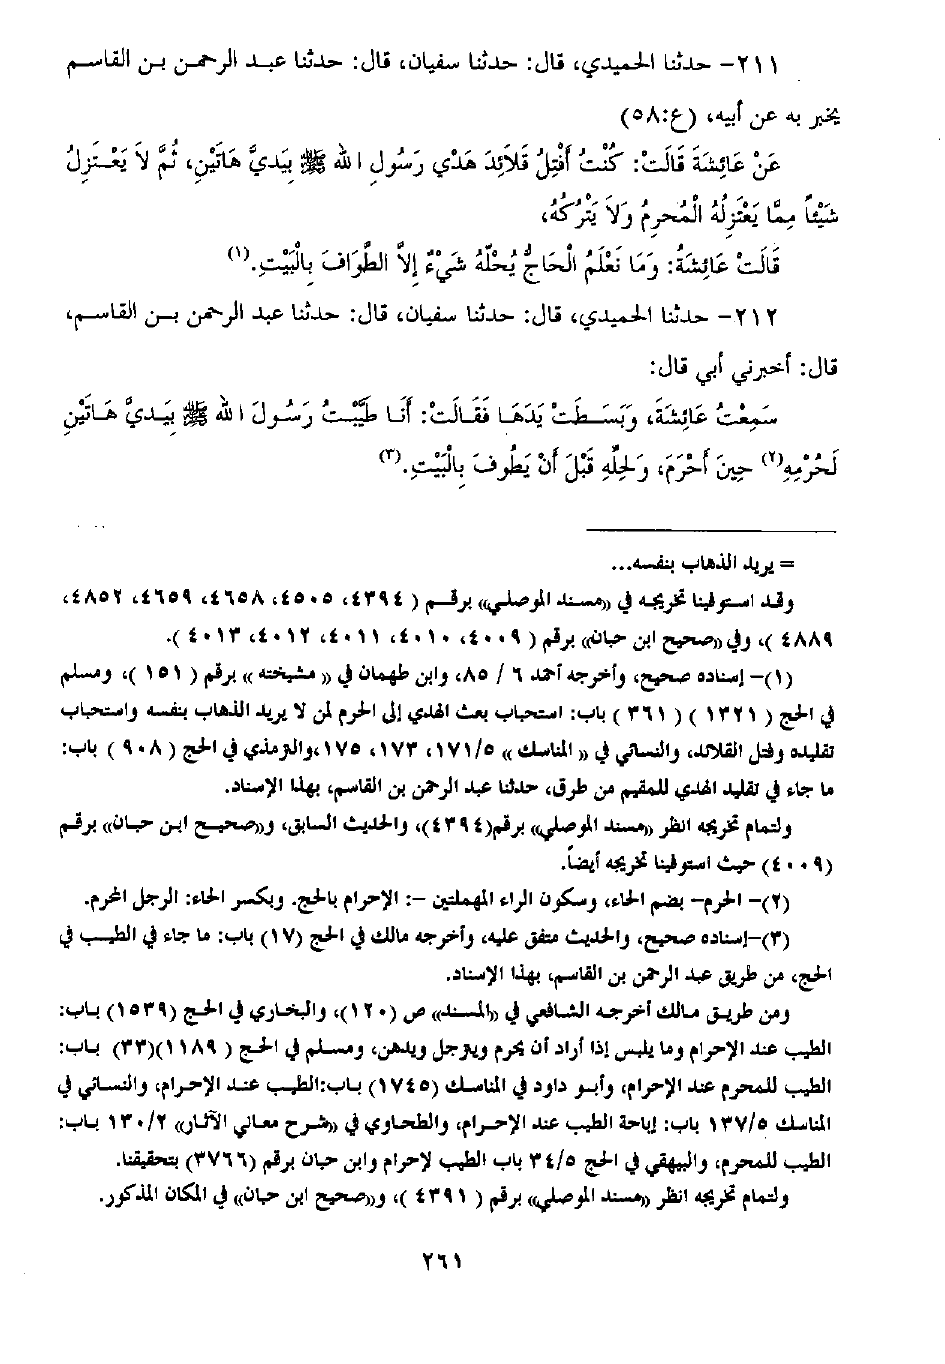 ٢١١- حدثنا الحميدي، قال: حدثنا سفيان، قال: حدثنا عبد الرحمن بن القاسم
يخبر به عن أبيه، (ع:٥٨)
عَنْ عَائِشَةَ قَالَتْ: كُنْتُ أَفْتِلُ قَلَائِدَ هَدْيِ رَسُولِ اللهِ ﷺ بِيَدَيَّ هَاتَيْنِ، ثُمَّ لاَ يَعْتَزِلُ
شَيْئاً مِمَّا يَعْتَزِلُهُ الْمُحرِمُ وَلاَ يَتْرُكُهُ،
قَالَتْ عَائِشَةُ: وَمَا نَعْلَمُ الْحَاجَّ يُحِلُّهُ شَيْءٌ إِلاَّ الطَّوَافَ بِالْبَيْتِ.(١)
٢١٢- حدثنا الحميدي، قال: حدثنا سفيان، قال: حدثنا عبد الرحمن بن القاسم،
قال: أخبرني أبي قال:
سَمِعْتُ عَائِشَةَ، وَبَسَطَتْ يَدَهَا فَقَالَتْ: أَنَا طَيَّبْتُ رَسُولَ اللهِ ﷺ بِيَدَيَّ هَاتَيْنِ
لِحُرْمِهِ(٢) حِينَ أَحْرَمَ، وَلِحِلِّهِ قَبْلَ أَنْ يَطُوفَ بِالْبَيْتِ.(٣)
= يريد الذهاب بنفسه...
وقد استوفينا تخريجه في «مسند الموصلي» برقم ( ٤٣٩٤، ٤٥٠٥، ٤٦٥٨، ٤٦٥٩، ٤٨٥٢،
٤٨٨٩ )، وفي «صحيح ابن حبان» برقم ( ٤٠٠٩، ٤٠١٠، ٤٠١١، ٤٠١٢، ٤٠١٣ ).
(١)- إسناده صحيح، وأخرجه أحمد ٦ / ٨٥، وابن طهمان في « مشيخته » برقم ( ١٥١ )، ومسلم
في الحج ( ١٣٢١ ) ( ٣٦١ ) باب: استحباب بعث الهدي إلى الحرم لمن لا يريد الذهاب بنفسه واستحباب
تقليده وفتل القلائد، والنسائي في « المناسك » ١٧١/٥، ١٧٣، ١٧٥ ،والترمذي في الحج ( ٩٠٨ ) باب:
ما جاء في تقليد الهدي للمقيم من طرق، حدثنا عبد الرحمن بن القاسم، بهذا الإسناد.
ولتمام تخريجه انظر «مسند الموصلي» برقم(٤٣٩٤)، والحديث السابق، و«صحيح ابن حبان» برقم
(٤٠٠٩) حيث استوفينا تخريجه أيضاً.
(٢)- الحرم- بضم الحاء، وسكون الراء المهملتين -: الإحرام بالحج. وبكسر الحاء: الرجل المحرم.
(٣)-إسناده صحيح، والحديث متفق عليه، وأخرجه مالك في الحج (١٧) باب: ما جاء في الطيب في
الحج، من طريق عبد الرحمن بن القاسم، بهذا الإسناد.
ومن طريق مالك أخرجه الشافعي في «المسند» ص (١٢٠)، والبخاري في الحج (١٥٣٩) باب:
الطيب عند الإحرام وما يلبس إذا أراد أن يحرم ويترجل ويدهن، ومسلم في الحج ( ١١٨٩)(٣٣) باب:
الطيب للمحرم عند الإحرام، وأبو داود في المناسك (١٧٤٥) باب:الطيب عند الإحرام، والنسائي في
المناسك ١٣٧/٥ باب: إباحة الطيب عند الإحرام، والطحاوي في «شرح معاني الآثار» ١٣٠/٢ باب:
الطيب للمحرم، والبيهقي في الحج ٣٤/٥ باب الطيب لإحرام وابن حبان برقم (٣٧٦٦) بتحقيقنا.
ولتمام تخريجه انظر «مسند الموصلي» برقم ( ٤٣٩١ )، و«صحيح ابن حبان» في المكان المذكور.
٢٦١